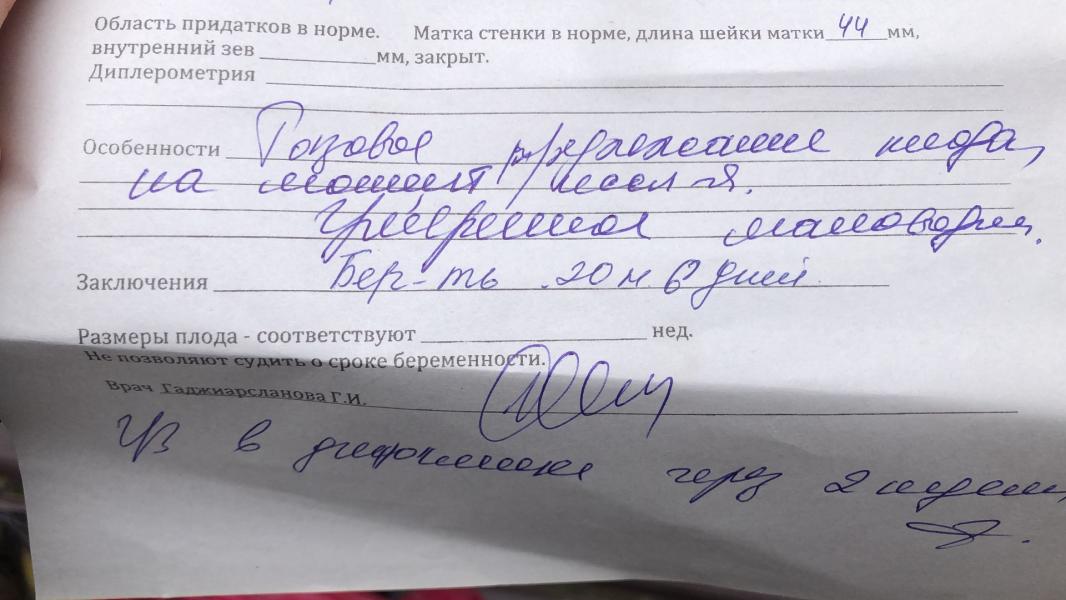 Область придатков в норме. Матка стенки в норме, длина шейки матки 44 мм,
внутренний зев ____________мм, закрыт.
Диплерометрия
Особенности Тазовое предлежание плода,
на момент иссл-я.
Умеренное маловодие.
Заключения Бер-ть 20 н. 6 дней
Размеры плода - соответствуют ____________ нед.
Не позволяют судить о сроке беременности.
Врач Гаджиарсланова Г.И.
УЗ в динамике через 2 недели,